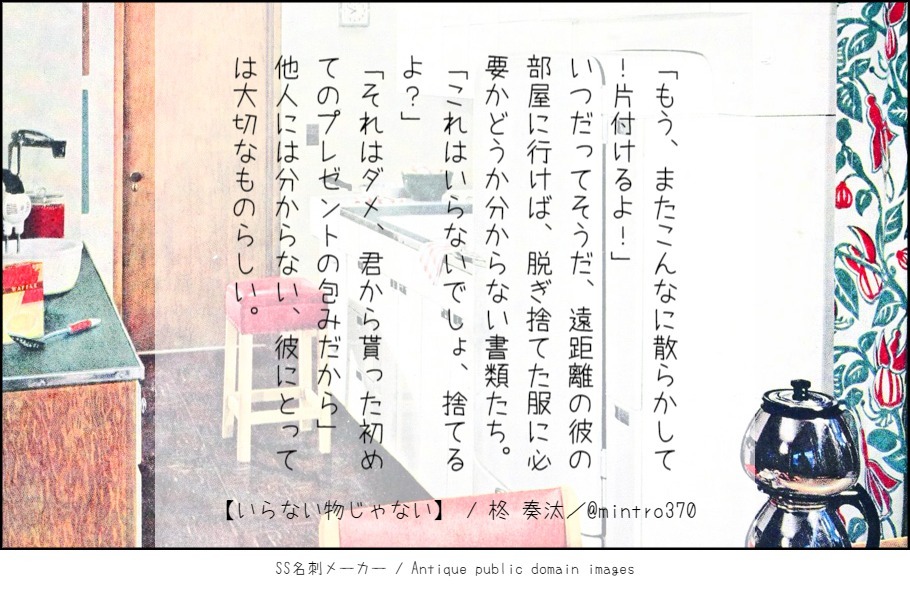 「もう、またこんなに散らかして
!片付けるよ!」
いつだってそうだ、遠距離の彼の
部屋に行けば、脱ぎ捨てた服に必
要かどうか分からない書類たち。
「これはいらないでしょ、捨てる
よ?」
「それはダメ、君から貰った初め
てのプレゼントの包みだから」
他人には分からない、彼にとって
は大切なものらしい。
【いらない物じゃない】 / 柊 奏汰/@mintro370
WAFFLE
SS名刺メーカー / Antique public domain images